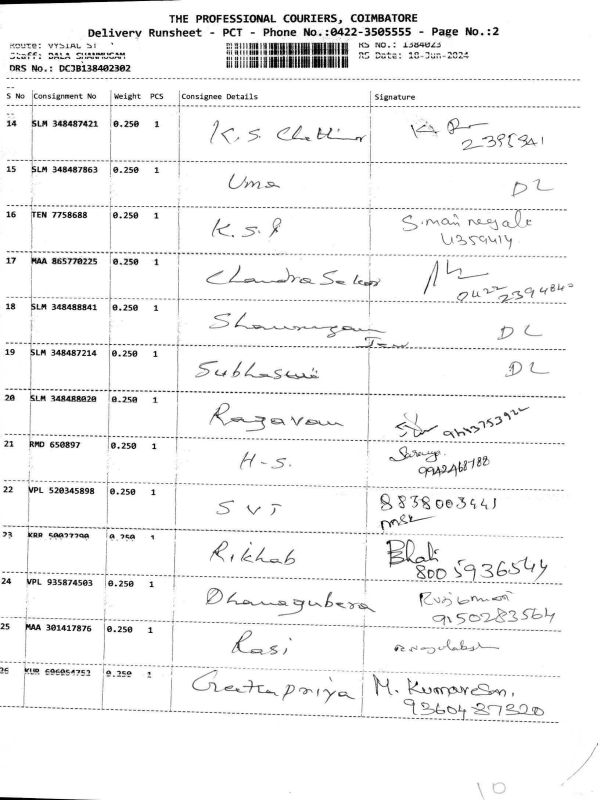 THE PROFESSIONAL COURIERS, COIMBATORE
Delivery Runsheet - PCT - Phone No.:0422-3505555 - Page No.:2
Route: VYSIAL ST
RS No.: 1384023
Staff: BALA SHANMUGAM
RS Date: 18-Jun-2024
DRS No.: DCJB138402302
S No Consignment No Weight PCS Consignee Details Signature
14 SLM 348487421 0.250 1 K.S. Chettiar
15 SLM 348487863 0.250 1 Uma DL
16 TEN 7758688 0.250 1 K.S.
4359414
17 MAA 865770225 0.250 1 Chandra Sekar
0422
18 SLM 348488841 0.250 1 Shanmugam DL
19 SLM 348487214 0.250 1 DL
20 SLM 348488020 0.250 1 Ragavan
21 RMD 650897 0.250 1 H-S.
9942468788
22 VPL 520345898 0.250 1 SVT 8838003441
23 0.250 1 Rikhab
8005936544
24 VPL 935874503 0.250 1 Dhanagubera
9150283564
25 MAA 301417876 0.250 1 Rasi
26 0.250 1 Geethapriya M. Kumaresan.
9360487320
10